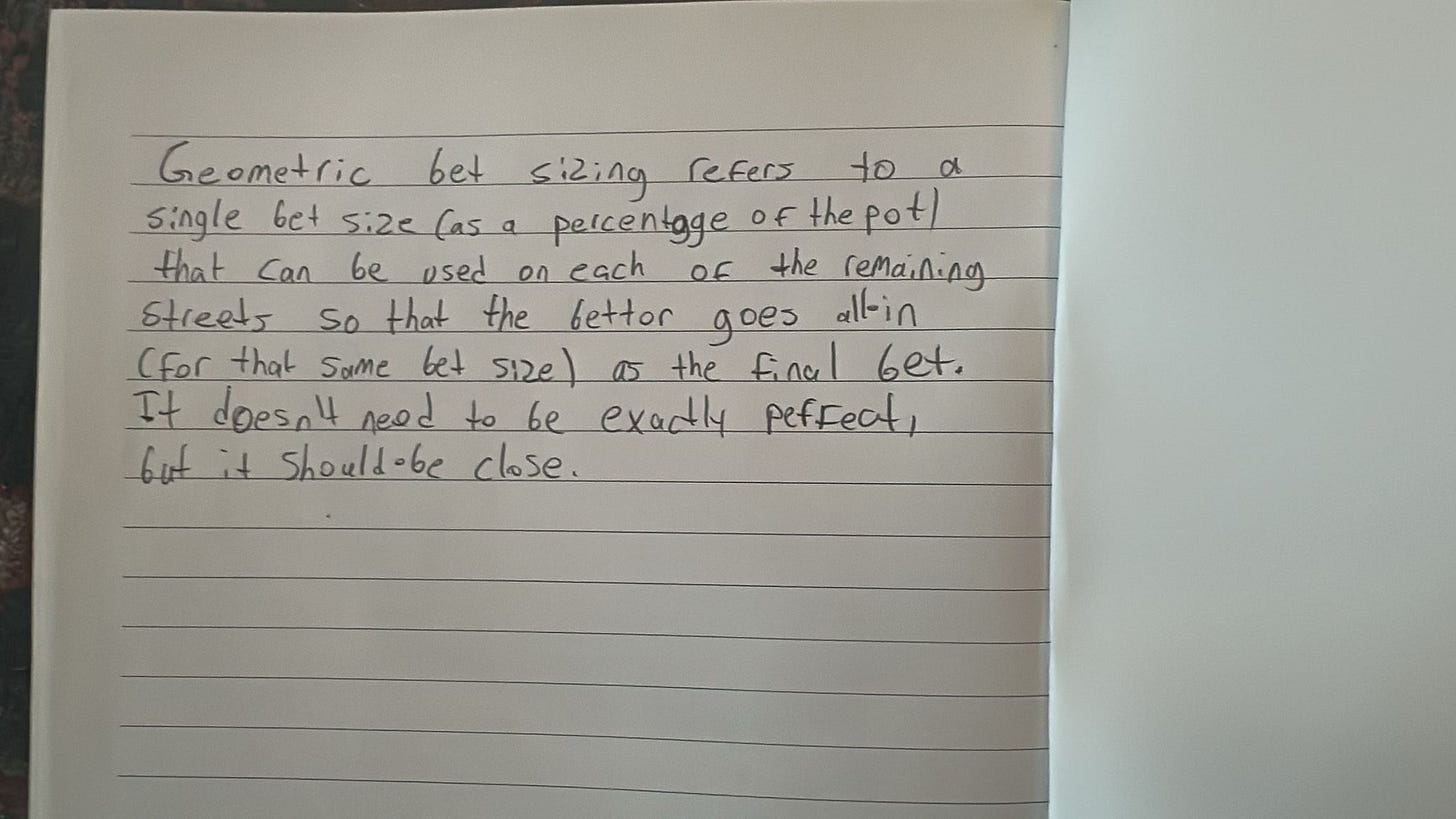 Geometric bet sizing refers to a
single bet size (as a percentage of the pot)
that can be used on each of the remaining
streets so that the bettor goes all-in
(for that same bet size) as the final bet.
It doesn't need to be exactly perfect,
but it should be close.